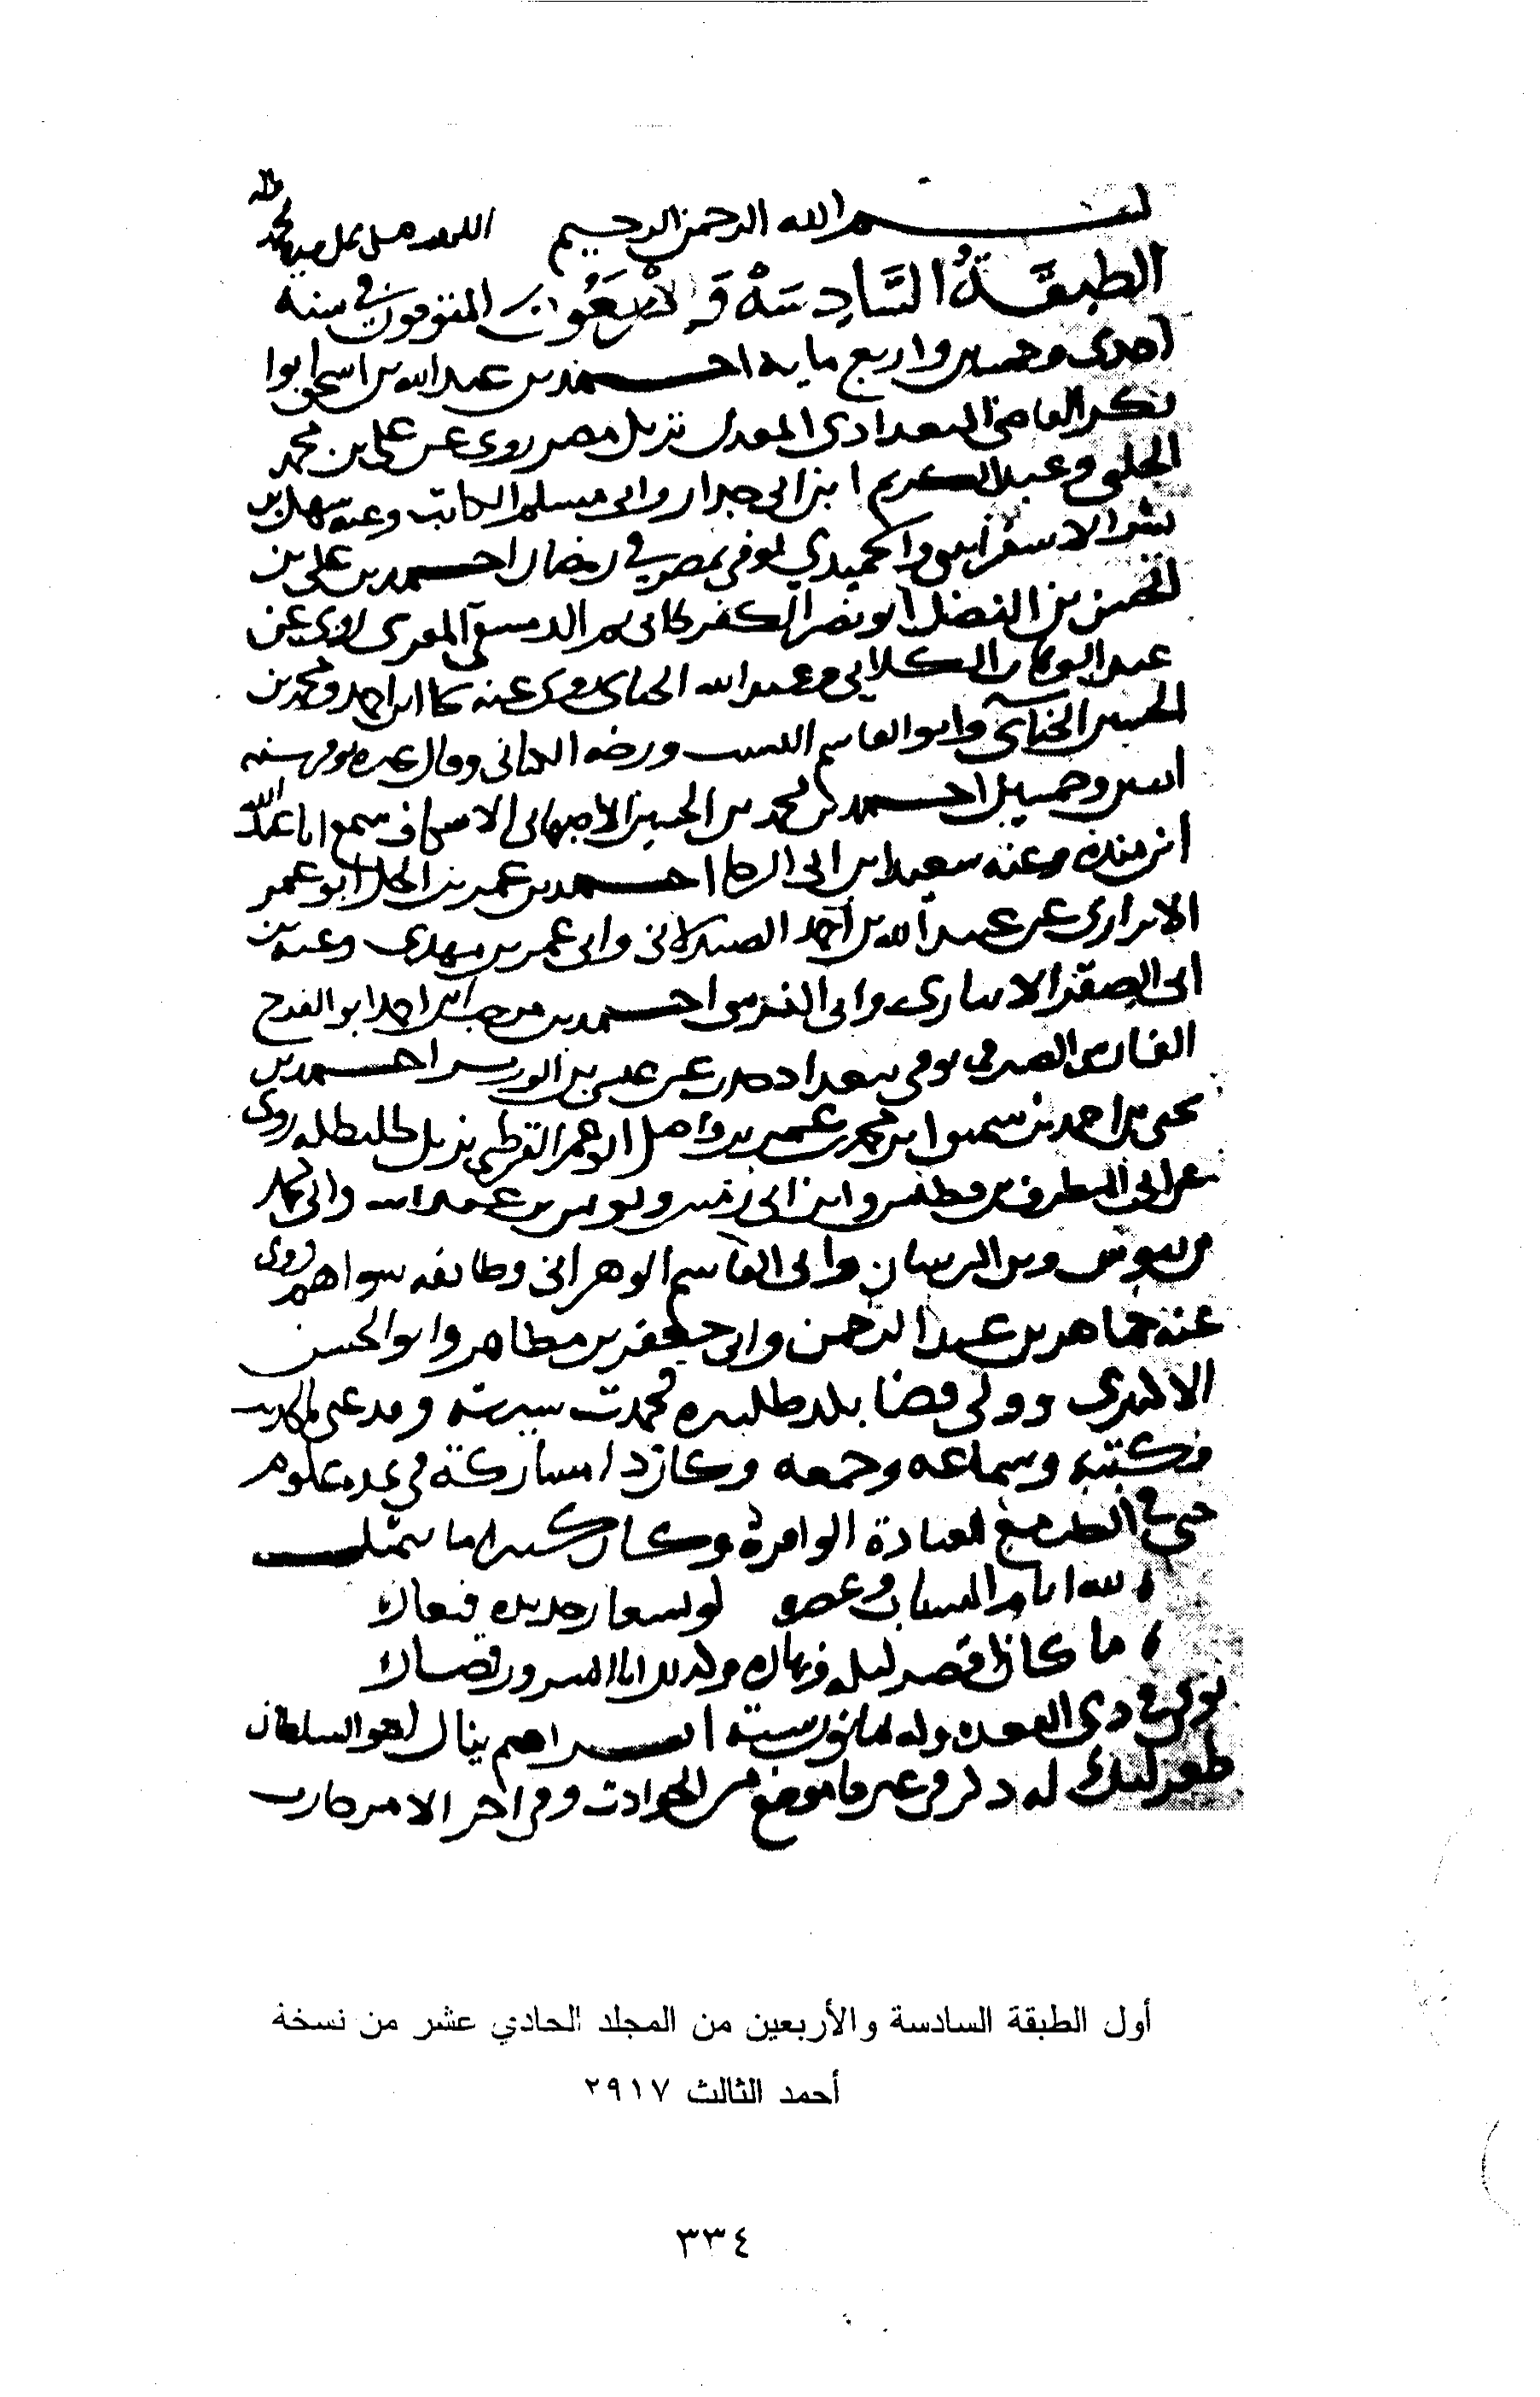 بسم الله الرحمن الرحيم اللهم صل على محمد
الطبقة السادسة والاربعون المتوفون في سنة
احدى وخمسين واربع ماية احمد بن عبد الله بن اسحق ابوا
بكر القاضي البغدادي المعدل نزيل مصر روى عن علي بن محمد
الحلبي وعبد الكريم ابن ابي جدار وابي مسلم الكاتب وعنه سهل بن
بشر الاسفراييني والحميدي توفي بمصر في رمضان احمد بن علي بن
الحسن بن الفضل ابو نصر الكفرطابي ثم الدمشقي المقرئ روى عن
عبد الوهاب الكلابي وعبد الله الحنائي روى عنه
الحسين الحنائي وابو القاسم النسيب ورخه الكتاني وقال غيره توفي سنة
اثنين وخمسين احمد بن محمد بن الحسين الاصبهاني الاسكاف سمع ابا عبد الله
ابن مندة وعنه سعيد بن ابي الرجا احمد بن عمر بن الخل ابو عمر
عن عبد الله بن احمد الصيدلاني وابي عمر بن مهدي وعنه بن
ابي الصقر الانباري وابي النرسي احمد بن احمد ابو الفرج
الفارسي الصيرفي توفي ببغداد حدث عن عيسى بن الوزير احمد بن
يحيى بن احمد بن سميق بن محمد بن عمر بن واصل ابو عمر القرطبي نزيل طليطلة روى
عن ابي المطرف بن فطيس وابن ابي زمنين ويونس بن عبد الله وابي محمد
بن بنوش وبن الرسان وابي القاسم الوهراني وطائفة سواهم روى
عنه جماهر بن عبد الرحمن وابي جعفر بن مطاهر وابو الحسن
الالبيري وولي قضا بلد طلبيرة فحمدت سيرته وقد عني بالحديث
وكتبه وسماعه وجمعه وكان ذا مشاركة في عدة علوم
حتى في الطب مع العبادة الوافرة وكان كثيرا ما يتمثل
لله ايام الشباب وعصره لو يستعار جديده فيعار
ما كان اقصر ليله ونهاره وكذلك ايام السرور قصار
توفي في ذي القعدة وله ثمانون سنة ابراهيم ينال اخو السلطان
طغرلبك له ذكر في غير ما موضع من الحوادث وفي اخر الامر حارب
أول الطبقة السادسة والأربعين من المجلد الحادي عشر من نسخة
أحمد الثالث ٢٩١٧
٣٣٤